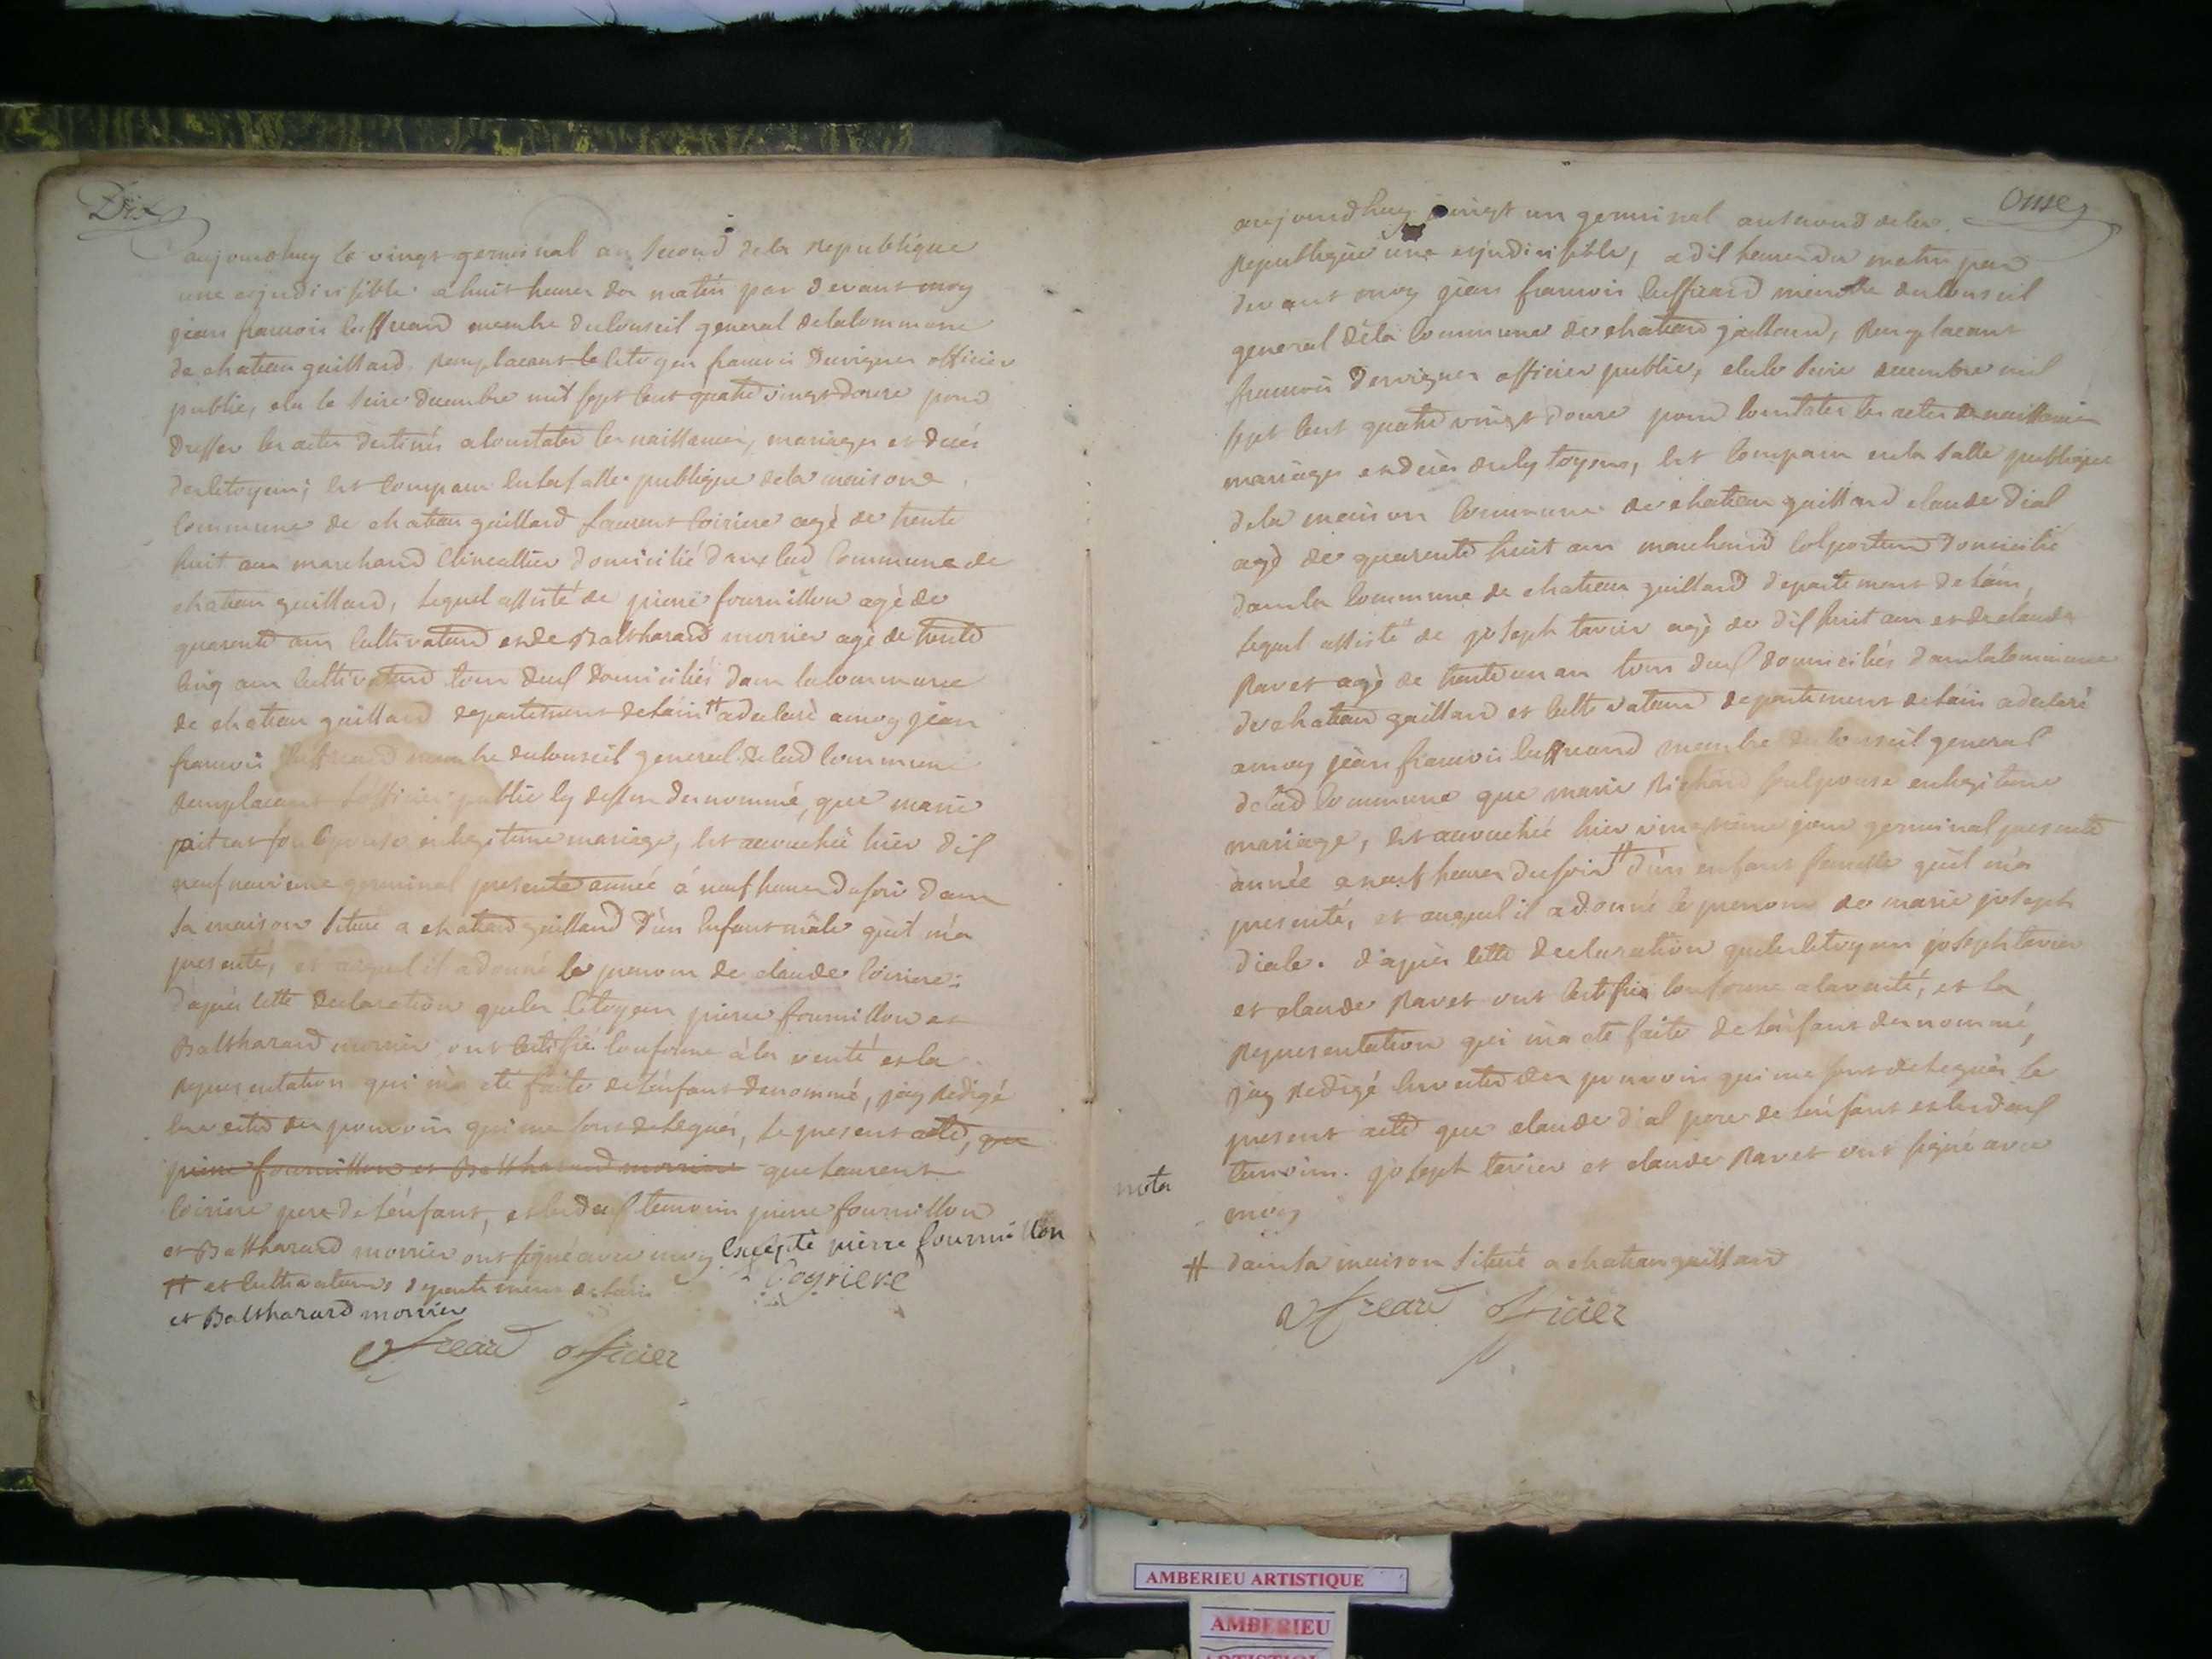 Dix
aujourdhuy le vingt germinal an second de la Republique
une & indivisible a huit heures du matin par devant moy
jean francois cuffreard membre du conseil general de la commune
de chateau gaillard remplacant le citoyen francois Dervignes officier
public, elu le seize decembre mil sept cent quatre vingt douze pour
dresser les actes destinés a constater les naissances, mariages et decés
des citoyens; est comparu en la salle publique de la maisone
commune de chateau gaillard laurent loiriere agé de trente
huit ans marchand clincallier domicilié dans lad commune de
chateau gaillard, lequel assisté de pierre fournillon agé de
quarente ans cultivateur et de Balthazard morrier agé de trente
cinq ans cultivateur tous deux domiciliés dans la commune
de chateau gaillard departement de lain # a declaré a moy jean
francois membre du conseil general de lad commune
remplacant lofficier public cy dessus denommé, que marie
son epouse en legitime mariage, est accouchée hier dix
neufvieme germinal presente année á neuf heures du soir dans
sa maison située a chateau gaillard d'un enfant mâle qu'il m'a
presenté, et auquel il a donné le prenom de claude loiriere:
d'apres cette declaration que les citoyens pierre fournillon et
Balthazard morrier ont certifié conforme á la verité et la
representation qui m'a eté faite de l'enfant denommé, jay redigé
en vertu des pouvoirs qui me sont delegués, le present acte, que
pierre fournillon et Balthazard morrier que laurent
loiriere pere de l'enfant, et les deux temoins pierre fournillon
et Balthazard morrier ont signé avec moy Excepté pierre fournillon
# et cultivateurs departement de lain
Coyriere
et Balthazard morrier
officier
Onze
aujourdhuy vingt un germinal an second de la
Republique une & indivisible, a dix heures du matin par
devant moy jean francois cuffreard membre du conseil
general de la commune de chateau gaillard, Remplacant
francois Dervignes officier public, elu le seize decembre mil
sept cent quatre vingt douze pour constater les actes de naissances
mariages et decès des cytoyens, est comparu en la salle publique
de la maison commune de chateau gaillard claude dial
agé de quarente huit ans marchand colporteur domicilié
dans la commune de chateau gaillard departement de lain,
lequel assisté de joseph tavier agé de dix huit ans et de claude
Ravet agé de trente un an tous deux domiciliés dans la commune
de chateau gaillard et cultivateurs departement de lain a declaré
a moy jean francois cuffreard membre du conseil general
de lad commune que marie Richard son epouse en legitime
mariage, est accouchée hier vingtieme jour germinal presente
année a neuf heures du soir # d'un enfant femelle qu'il m'a
presenté, et auquel il a donné le prenom de marie joseph
diale. d'après cette declaration que les citoyens joseph tavier
et claude Ravet ont certifiés conforme a la verité, et la
representation qui m'a eté faite de l'enfant denommé,
j'ay redigé en vertu des pouvoirs qui me sont delegués le
present acte que claude dial pere de l'enfant et les deux
temoins. joseph tavier et claude Ravet ont signé avec
nota
moy
# dans sa maison située a chateau gaillard
officier
AMBERIEU ARTISTIQUE
AMBERIEU
ARTISTIQUE